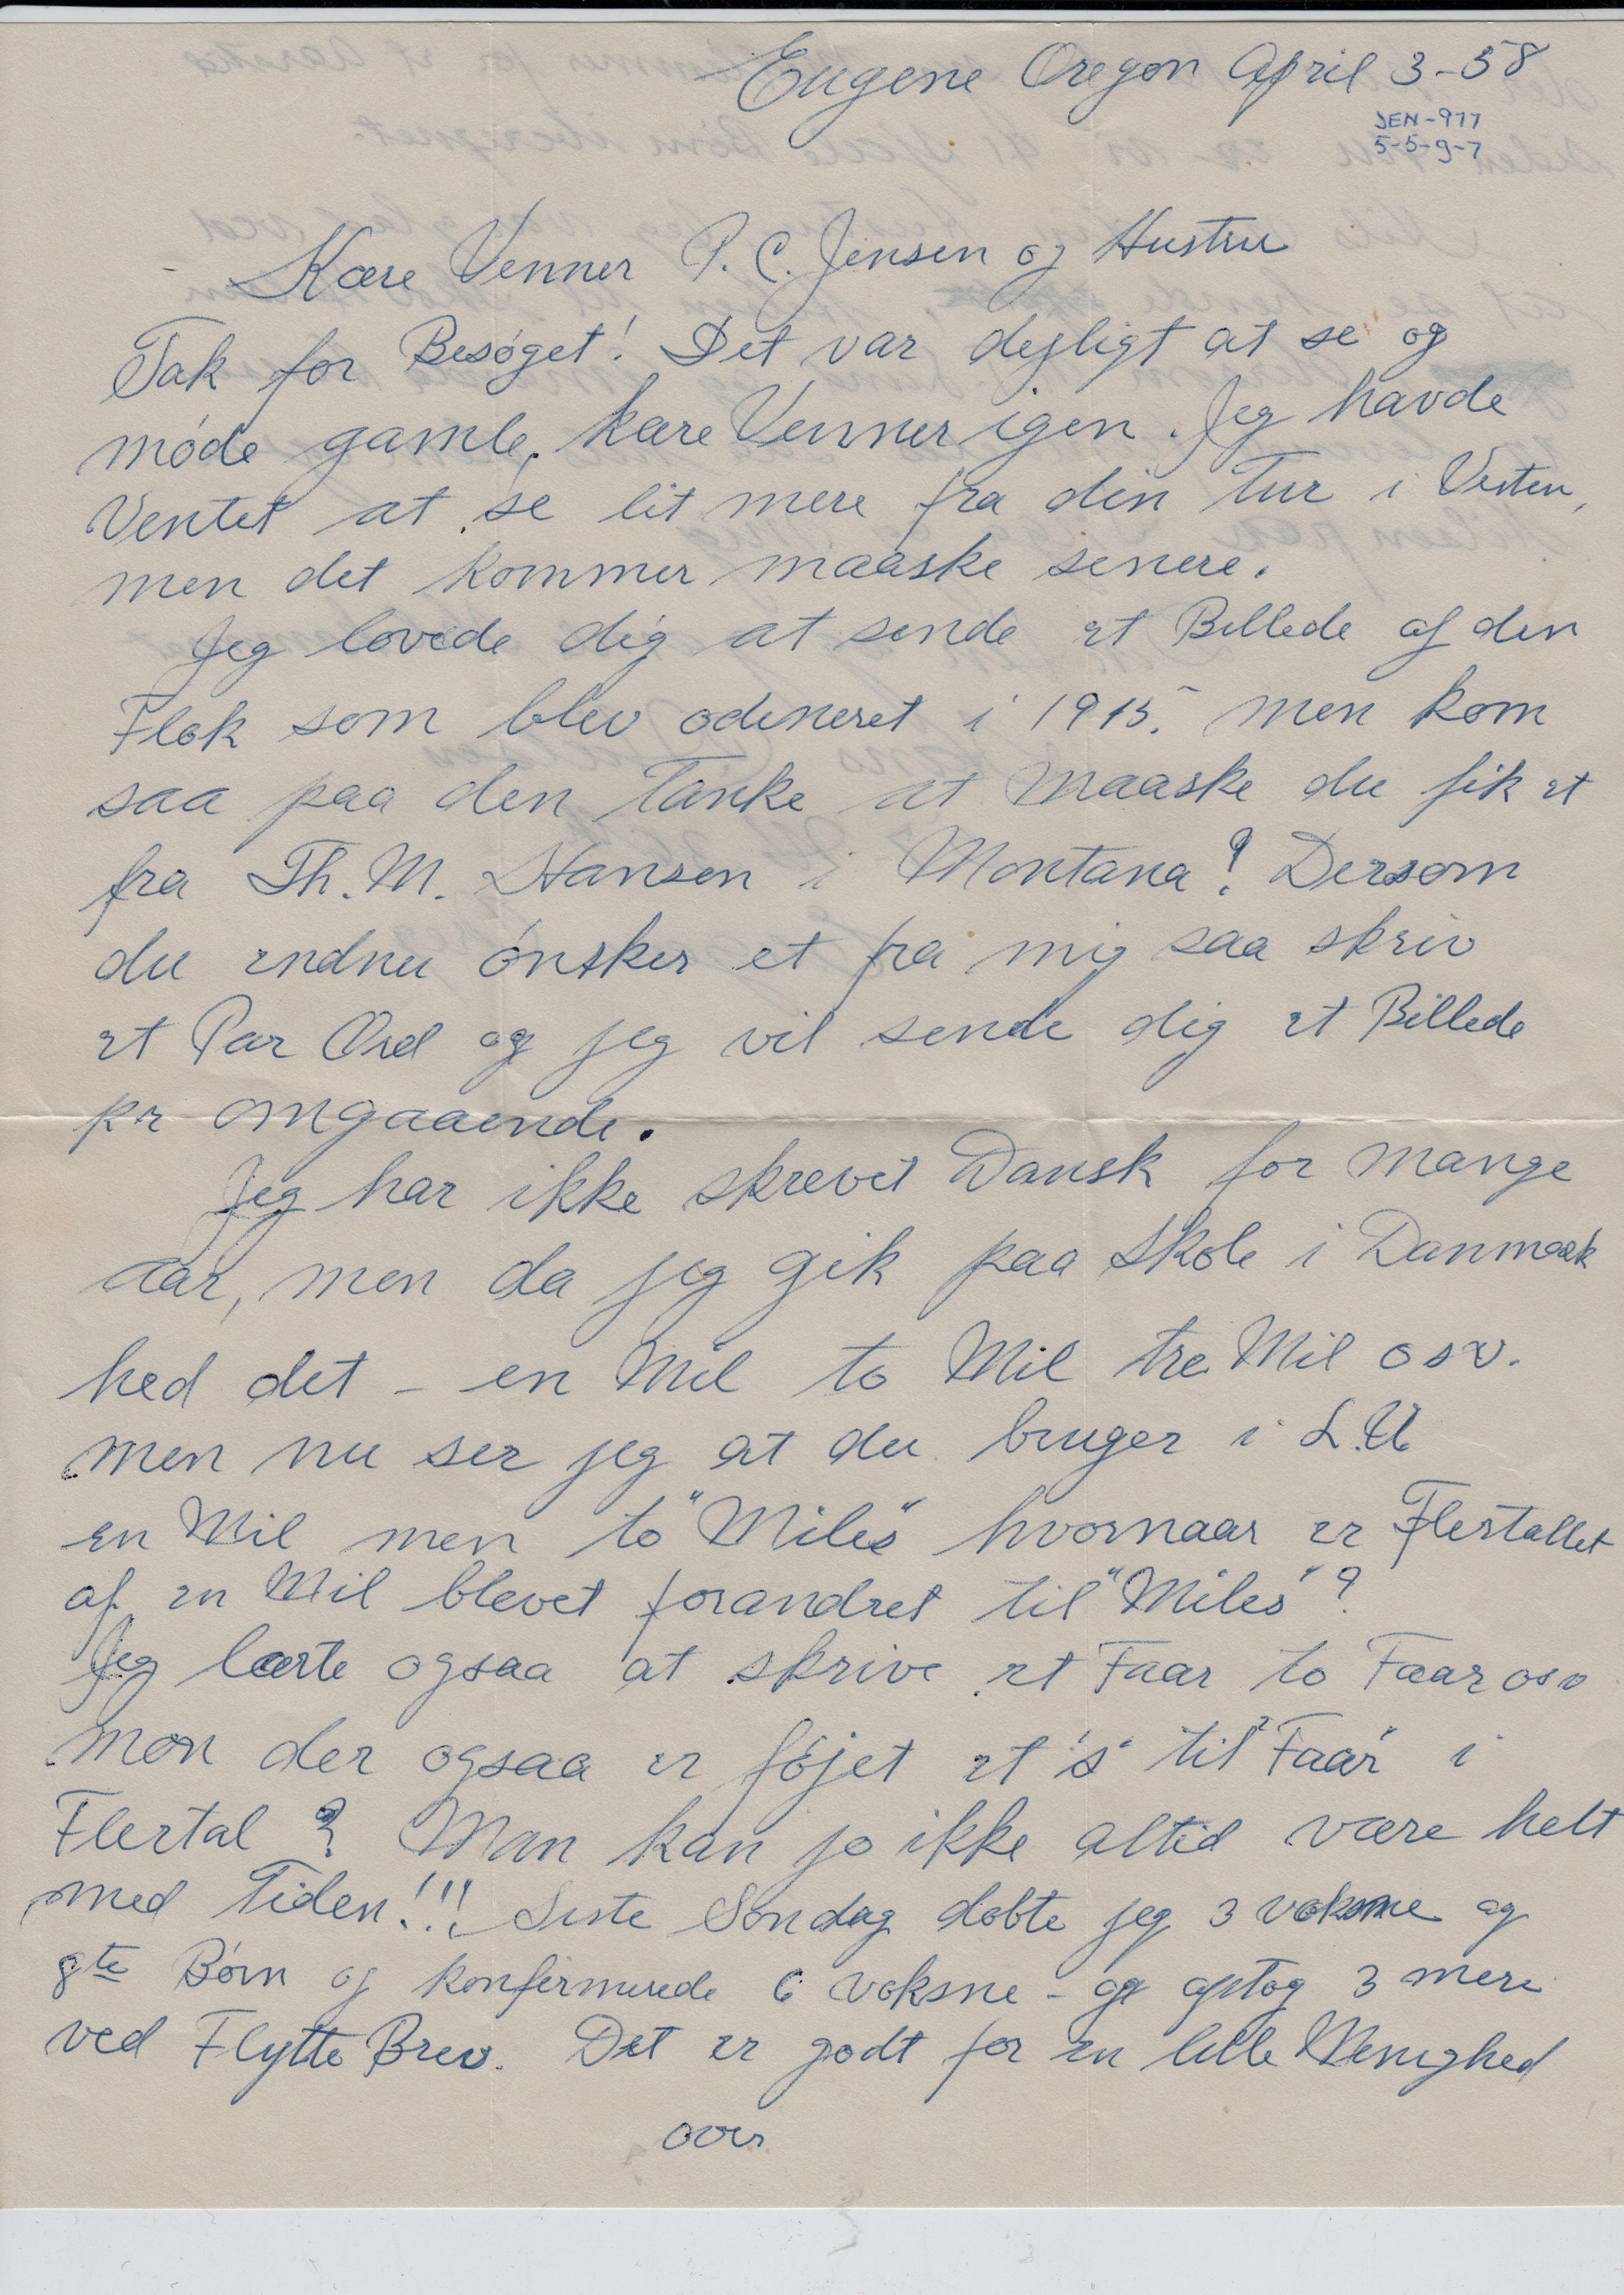 Eugene Oregon April 3-58
JEN-977
5-5-9-7
Kære Venner P. C. Jensen og Hustru
Tak for Besøget! Det var dejligt at se og
møde gamle, kære Venner igen. Jeg havde
Ventet at se lit mere fra din Tur i Vesten,
men det kommer maaske senere.
Jeg lovede dig at sende et Billede af den
Flok som blev odineret i 1915. men kom
saa paa den Tanke at Maaske du fik et
fra Th. M. Hansen i Montana? Dersom
du endnu ønsker et fra mig saa skriv
et Par Ord og jeg vil sende dig et Billede
pr omgaaende.
Jeg har ikke skrevet Dansk for mange
aar, men da jeg gik paa Skole i Danmark
hed det - en Mil to Mil tre Mil osv.
men nu ser jeg at du bruger i L.U
en Mil men to "Miles" hvornaar er Flertallet
af en Mil blevet forandret til "Miles"?
Jeg lærte ogsaa at skrive et Faar to Faar osv
mon der ogsaa er føjet et "s" til "Faar" i
Flertal? Man kan jo ikke altid være helt
med Tiden!!! Siste Søndag døbte jeg 3 voksne og
8te Børn og konfirmerede 6 voksne - og optog 3 mere
ved Flytte Brev. Det er godt for en lille Menighed
over